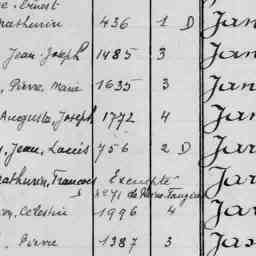 Ernest
Mathurin 436 1 D Jan
Jean Joseph 1485 3 Jan
, Pierre Marie 1635 3 Jan
Auguste, Joseph 1772 4 Jan
, Jean, Louis 756 2 D Jar
Mathurin, Francois Exempté Jar
de
, Celestin 1996 4 Jar
, Pierre 1387 3 Jas